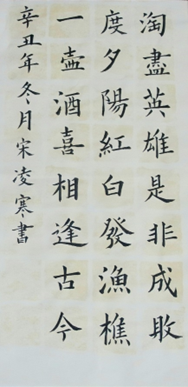 淘盡英雄是非成敗
度夕陽紅白發漁樵
一壺酒喜相逢古今
辛丑年冬月宋凌寒書